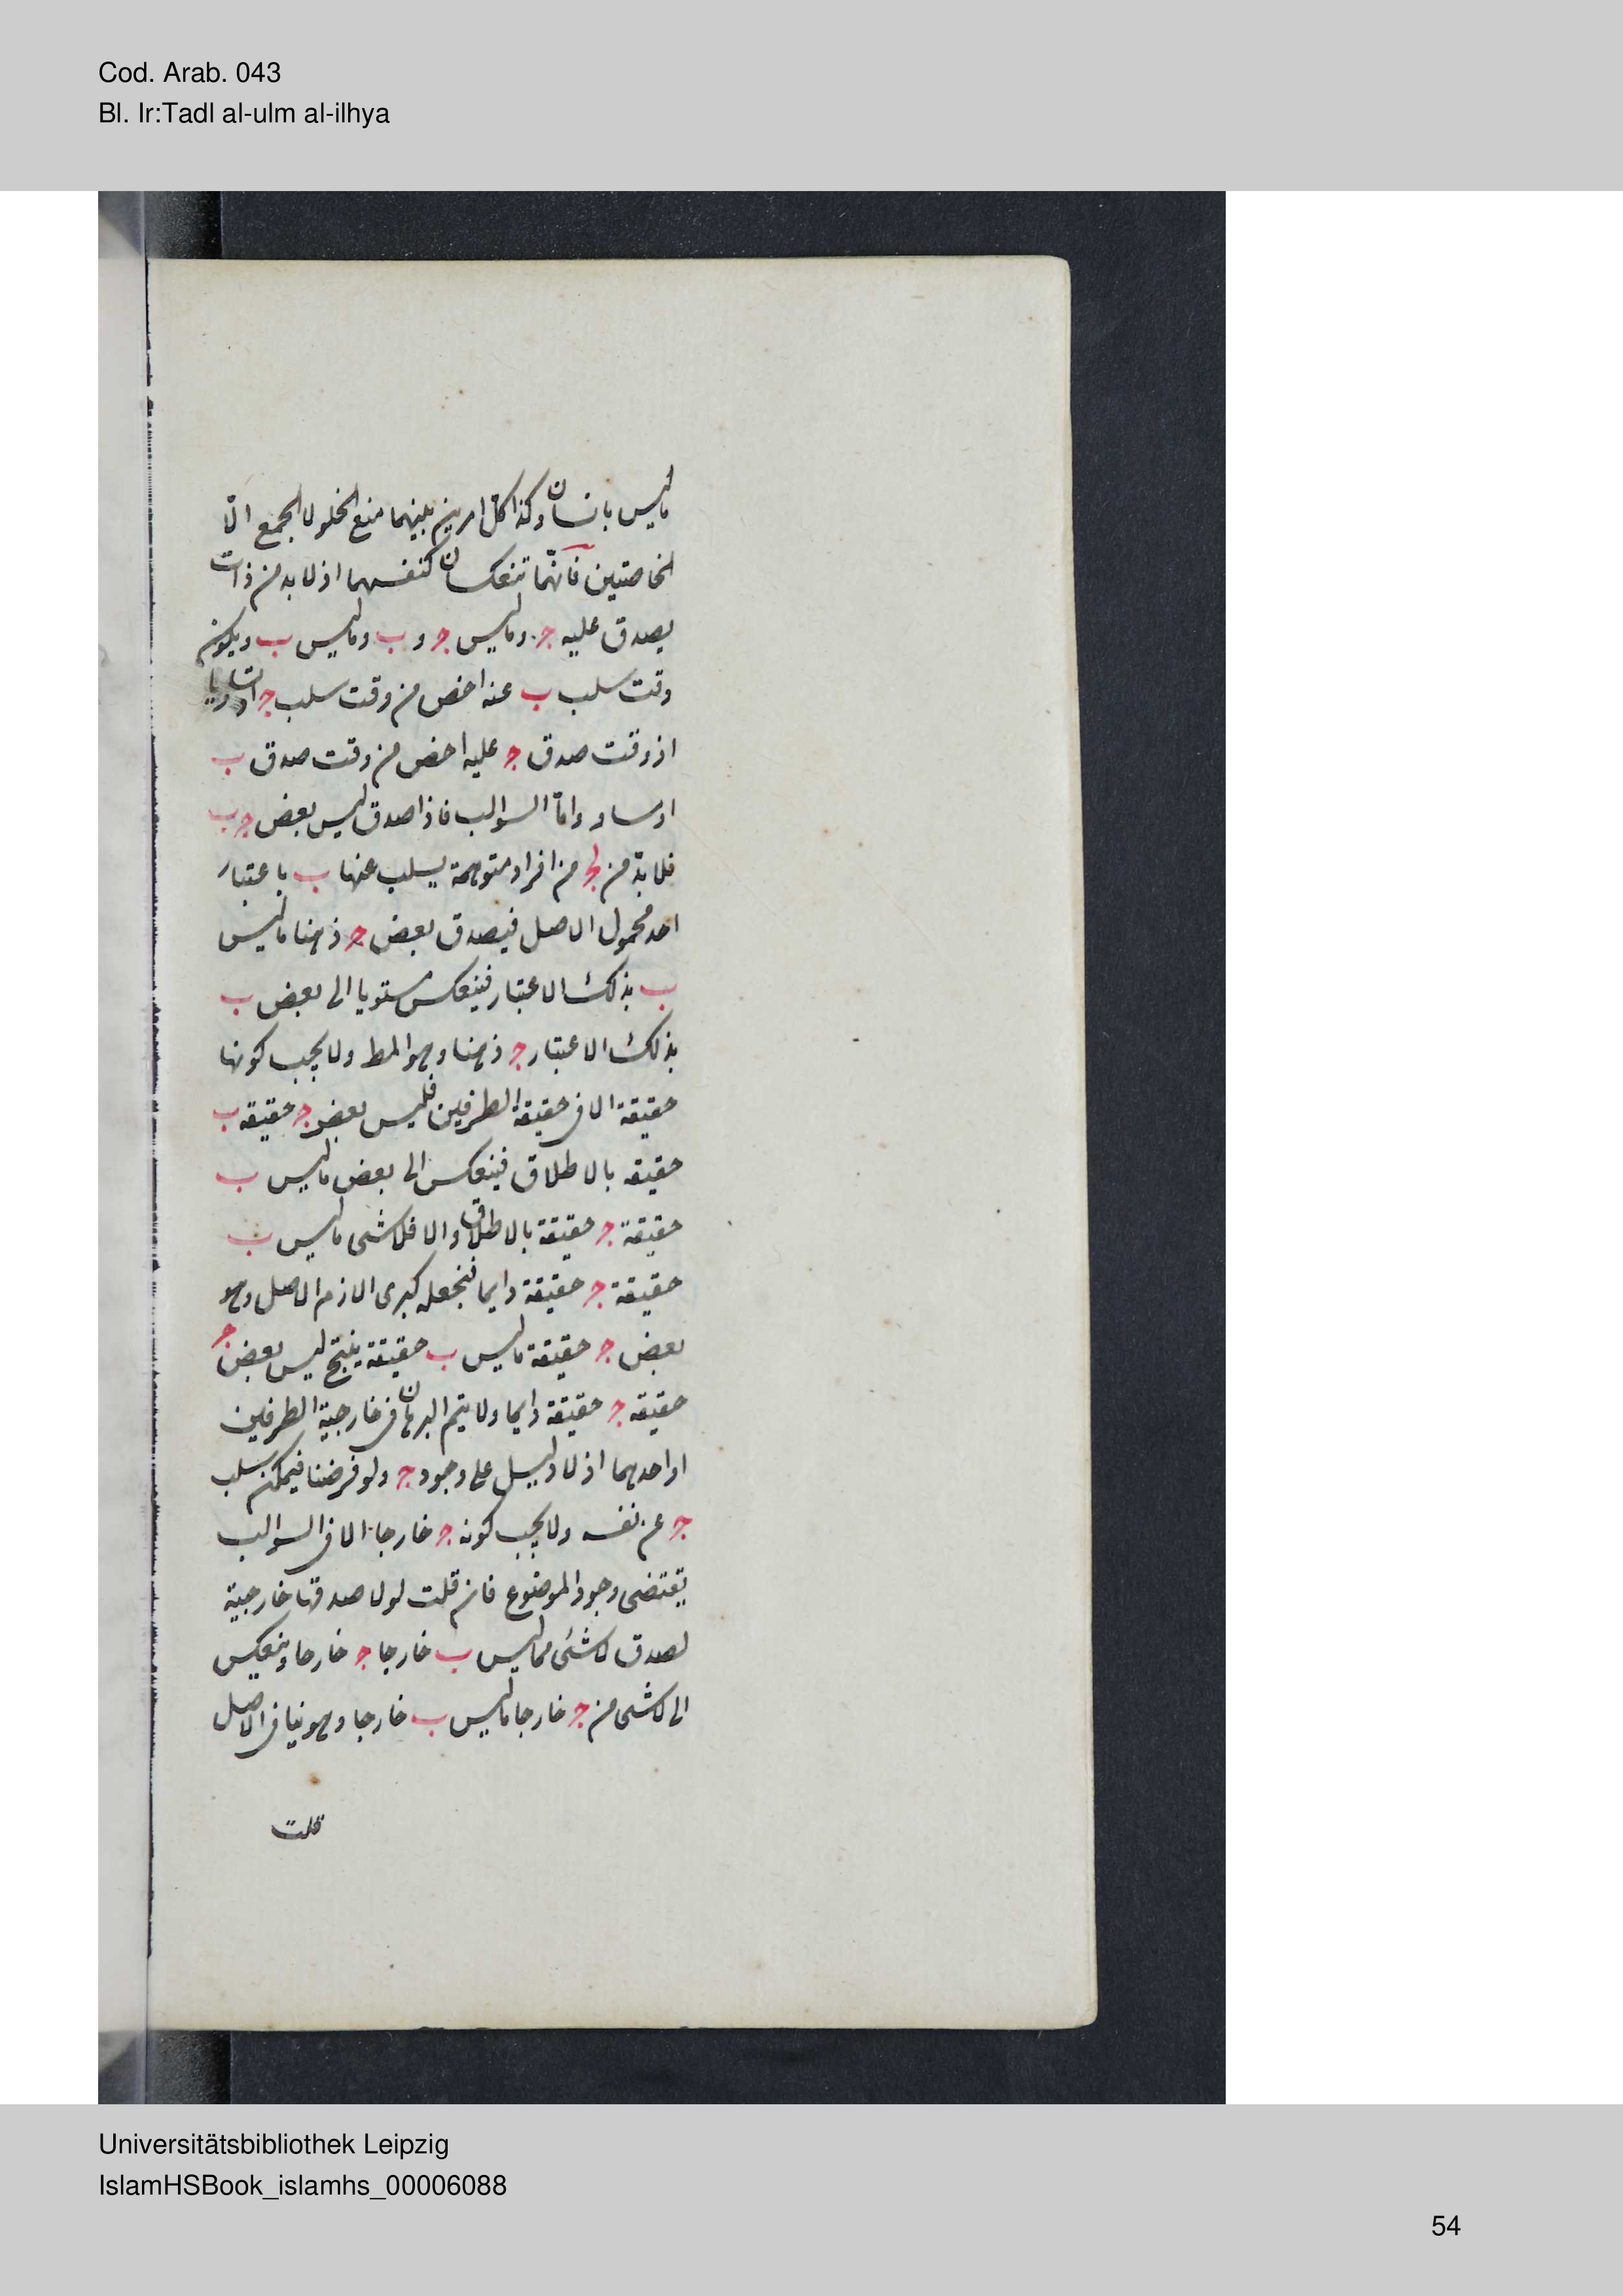 Cod. Arab. 043
Bl. Ir:Tadl al-ulm al-ilhya
ما ليس بانسان وكذا كل امرين بينهما منع الخلو لا الجمع الّا
الخاصتين فانّهما تنعكسان كنفسهما اذ لا بد من ذات
يصدق عليه ج وما ليس ج و ب وما ليس ب ويكون
وقت سلب ب عنه اخص من وقت سلب ج
اذ وقت صدق ج عليه اخص من وقت صدق ب
او مساو وامّا السوالب فاذا صدق ليس بعض ج ب
فلا بدّ من لج من افراد متوهمة يسلب عنها ب باعتبار
احد محمول الاصل فيصدق بعض ج ذهنا ما ليس
ب بذلك الاعتبار فينعكس مستويا الى بعض ب
بذلك الاعتبار ج ذهنا وهو المط ولا يجب كونها
حقيقة الا فى حقيقة الطرفين فليس بعض ج حقيقه ب
حقيقه بالاطلاق فينعكس الى بعض ما ليس ب
حقيقة ج حقيقة بالاطلاق والا فلا شى ما ليس ب
حقيقة ج حقيقة دايما فنجعله كبرى لازم الاصل وهو
بعض ج حقيقة ما ليس ب حقيقة ينتج ليس بعض ج
حقيقه ج حقيقة دايما ولا يتم البرهان فى خارجية الطرفين
او احدهما اذ لا دليل على وجود ج ولو فرضنا فيمكن سلب
ج عن نفسه ولا يجب كونه ج خارجا الا فى السوالب
يقتضى وجود الموضوع فان قلت لولا صدقها خارجية
لصدق لا شئ مما ليس ب خارجا ج خارجا وينعكس
الى لا شى من ج خارجا ما ليس ب خارجا وهو ينافى الاصل
قلت
Universitätsbibliothek Leipzig
IslamHSBook_islamhs_00006088
54